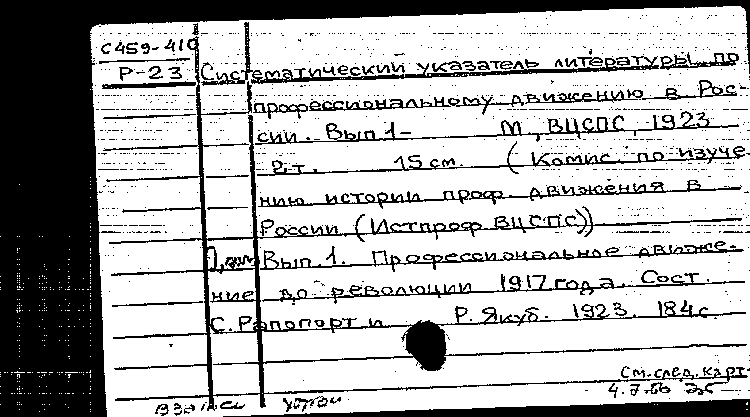 С459-410
Р-23 Систематический указатель литературы по
профессиональному движению в Рос-
сии. Вып 1- М, ВЦСПС, 1923
2 т. 15 см. (Комис. по изуче
нию истории проф. движения в
России (Истпроф ВЦСПС))
Вып. 1. Профессиональное движе-
ние до революции 1917 года. Сост.
С. Рапопорт и Р. Якуб. 1923. 184 с.
См. след. карт